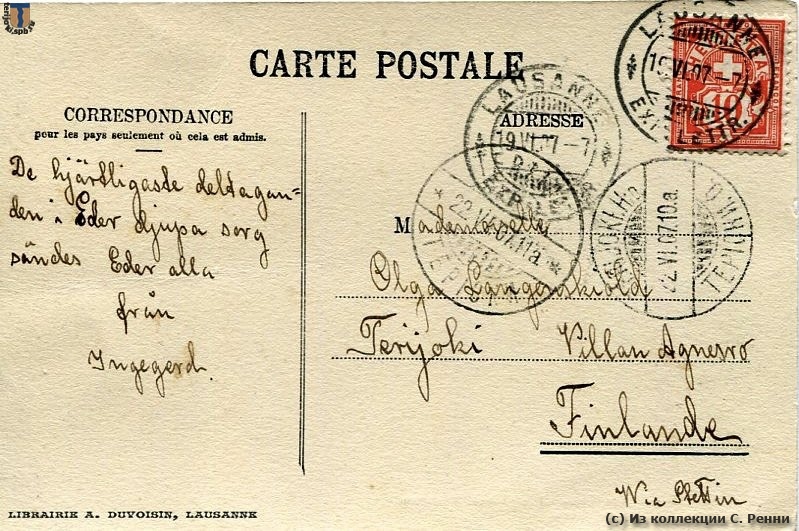 terijoki.spb.ru
CARTE POSTALE
CORRESPONDANCE
pour les pays seulement où cela est admis.
ADRESSE
LAUSANNE
19.VI.07.–7
EXP. LETTR.
LAUSANNE
19.VI.07.–7
10
22.VI.07.11a.
22.VI.07.10a.
TERIJOKI.H:
De hjärtligaste deltagan=
den i Eder djupa sorg
sändes Eder alla
från
Ingegerd.
Mademoiselle
Olga Langenskiöld
Terijoki Villan Agnesro
Finlande
Via Stettin
LIBRAIRIE A. DUVOISIN, LAUSANNE
(c) Из коллекции С. Ренни